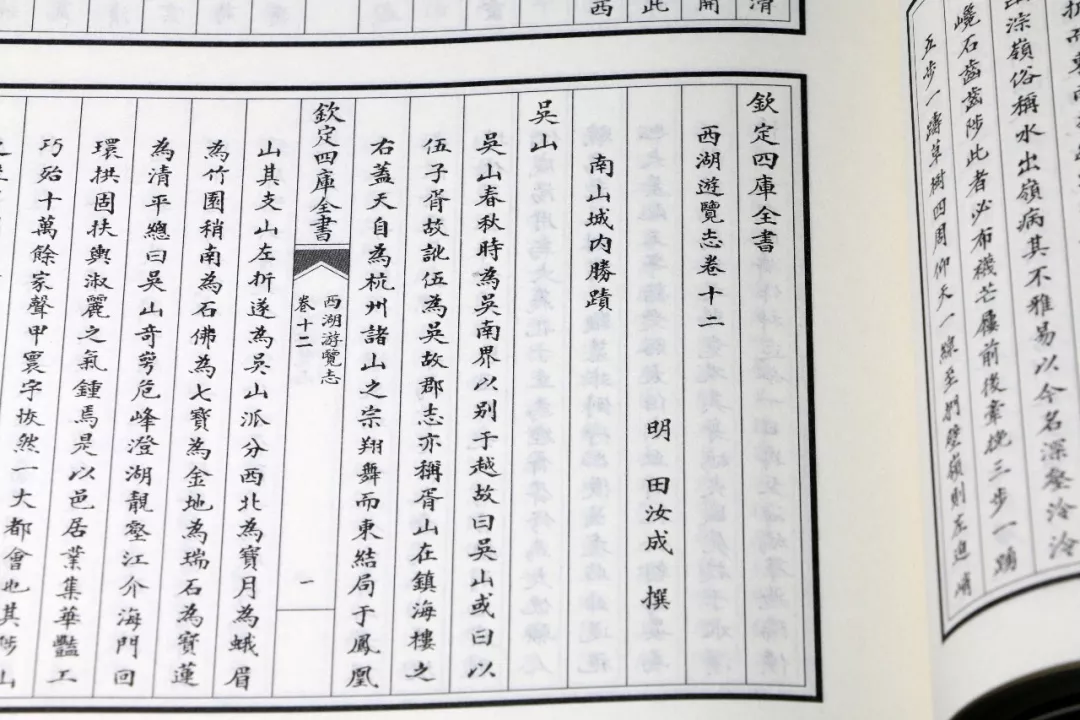 欽定四庫全書
西湖遊覽志卷十二
明田汝成撰
南山城內勝蹟
吳山
吳山春秋時為吳南界以别于越故曰吳山或曰以
伍子胥故訛伍為吳故郡志亦稱胥山在鎮海樓之
右蓋天自為杭州諸山之宗翔舞而東結局于鳳凰
欽定四庫全書
西湖游覽志
卷十二
一
山其支山左折遂為吳山派分西北為寶月為蛾眉
為竹園稍南為石佛為七寶為金地為瑞石為寶蓮
為清平總曰吳山奇崿危峰澄湖靚壑江介海門回
環拱固扶輿淑麗之氣鍾焉是以邑居業集華豔工
巧殆十萬餘家聲甲寰宇恢然一大都會也其陟山
清
開
此
西
淙嶺俗稱水出嶺病其不雅易以今名深壑泠泠
巉石齒齒陟此者必布襪芒屨前後牽挽三步一踴
五步一躊草樹四周仰天一線至捫壁嶺則左迤